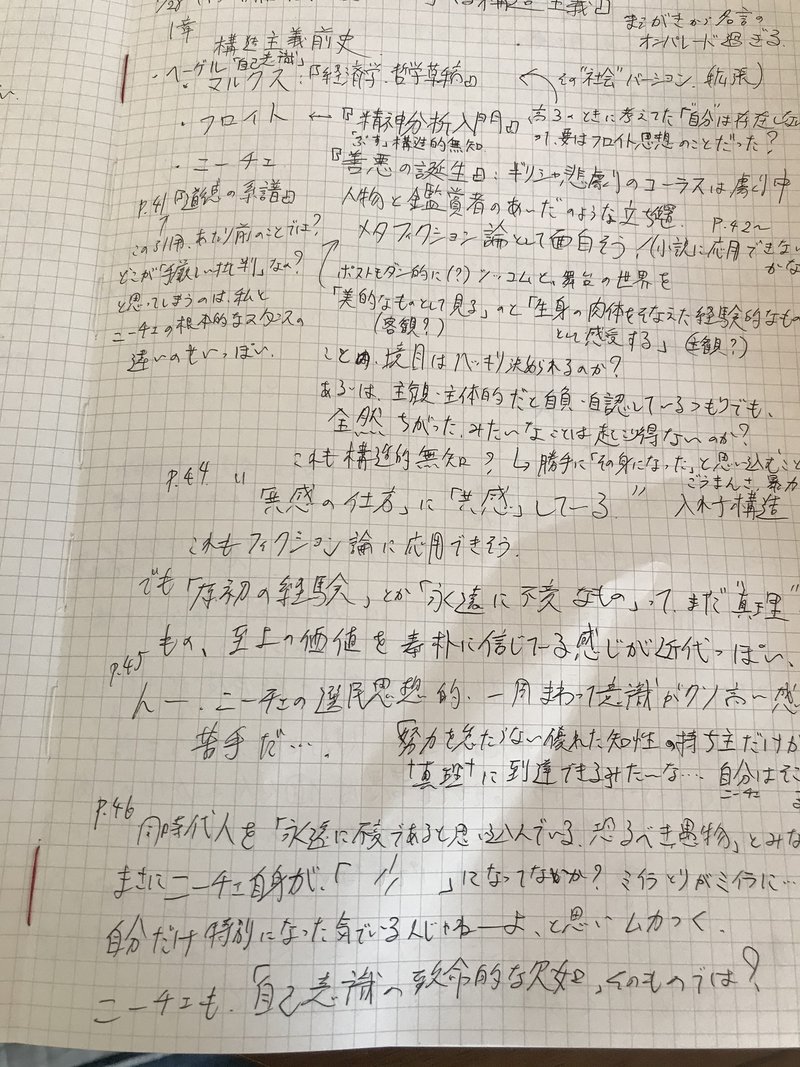 1/28
は構造主義』
まえがきから名言の
オンパレード過ぎる
1章
構造主義前史
・ヘーゲル「自己意識」
・マルクス:『経済学・哲学草稿』
その"社会"バージョン.(拡張)
・フロイト ← 『精神分析入門』
「ぶす」構造的無知
高3のときに考えてた「自分」は存在しない
って、要はフロイト思想のことだった?
・ニーチェ 『善悪の誕生』:ギリシャ悲劇のコーラスは劇中
人物と鑑賞者のあいだのような立ち位置. P.42〜
メタフィクション論として面白そう!(小説に応用できない
かな
P.41『道徳の系譜』
この引用、あたり前のことでは?
どこが「手厳しい批判」なの?
と思ってしまうのは、私と
ニーチェの根本的なスタンスの
違いのせいっぽい.
ポストモダン的に(?)ツッコムと、舞台の世界を
「美的なものとして見る」のと「生身の肉体をそなえた経験的なもの
(客観?)
として感受する」(主観?)
ことの境目はハッキリ決められるのか?
あるいは、主観・主体的だと自負・自認しているつもりでも、
全然ちがった、みたいなことは起こり得ないのか?
これも構造的無知? ↳ 勝手に「その身になった」と思い込むこと
ごうまんさ、暴力
P.44 "「無感の仕方」に「共感」している" 入れ子構造
これもフィクション論に応用できそう.
でも「原初の経験」とか「永遠に不変なもの」って、まだ"真理"
もの、至上の価値を素朴に信じている感じが近代っぽい、
P.45
んー.ニーチェの選民思想的、一周まわって意識がクソ高い感
苦手だ….
「努力を怠たらない優れた知性の持ち主だけが
†真理†に到達できるみたいな… 自分はそこ
ニーチェ
P.46
同時代人を「永遠に不変であると思い込んでいる、恐るべき愚物」とみな
まさにニーチェ自身が、「 〃 」になってなかか? ミイラとりがミイラに…
自分だけ特別になった気でいる人じゃねーよ、と思いムカつく.
ニーチェも、「自己意識の致命的な欠如」そのものでは?